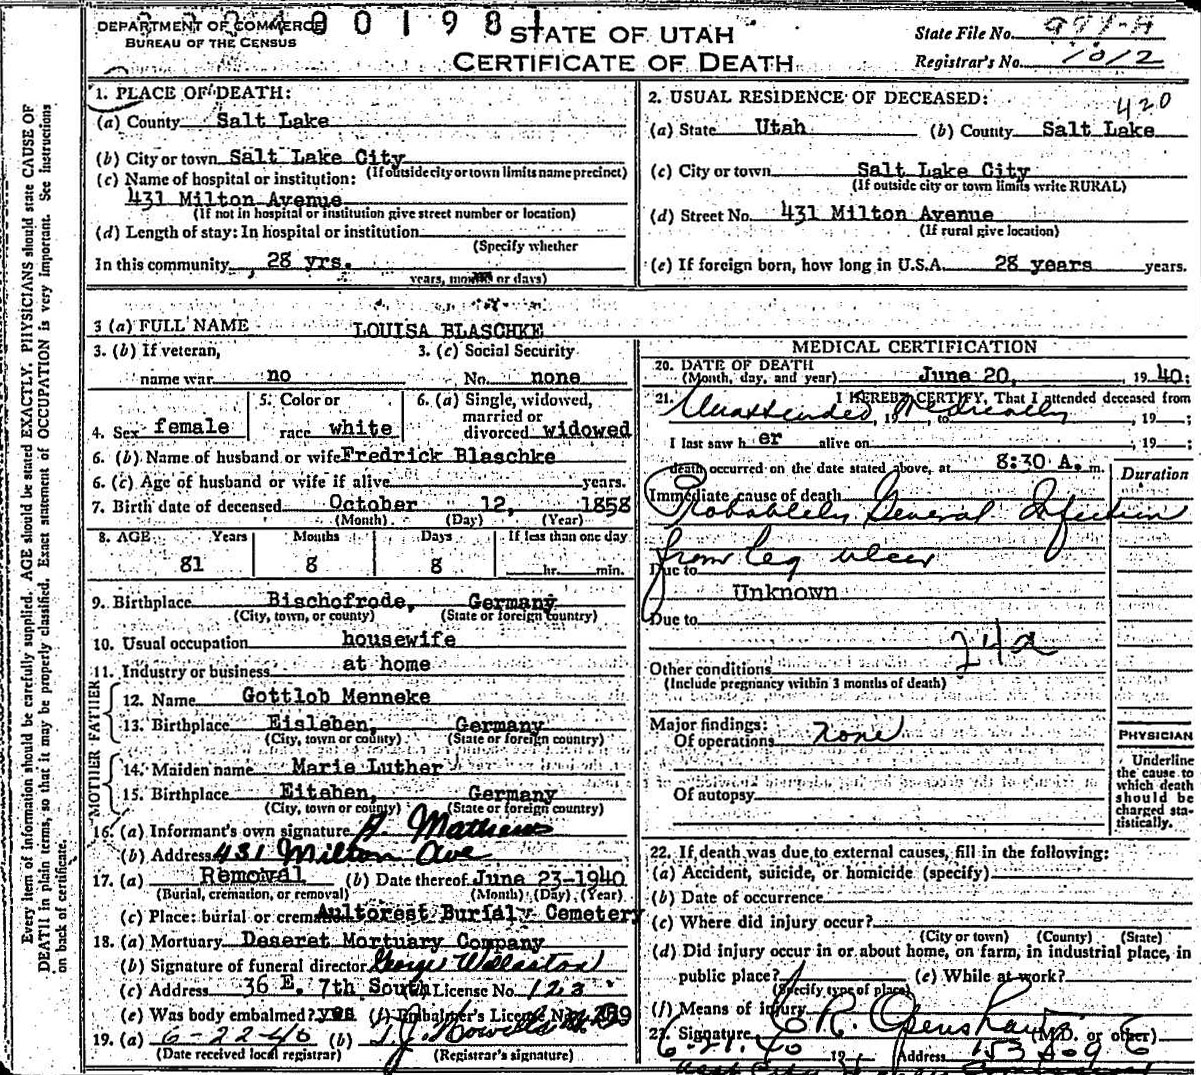 DEPARTMENT OF COMMERCE
BUREAU OF THE CENSUS
001981
STATE OF UTAH
CERTIFICATE OF DEATH
State File No.
Registrar's No. 1012
Every item of information should be carefully supplied. AGE should be stated EXACTLY. PHYSICIANS should state CAUSE OF
DEATH in plain terms, so that it may be properly classified. Exact statement of OCCUPATION is very important. See instructions
on back of certificate.
1. PLACE OF DEATH:
(a) County Salt Lake
(b) City or town Salt Lake City
(If outside city or town limits name precinct)
(c) Name of hospital or institution:
431 Milton Avenue
(If not in hospital or institution give street number or location)
(d) Length of stay: In hospital or institution
(Specify whether
In this community 28 yrs.
years, months or days)
2. USUAL RESIDENCE OF DECEASED:
420
(a) State Utah (b) County Salt Lake
(c) City or town Salt Lake City
(If outside city or town limits write RURAL)
(d) Street No. 431 Milton Avenue
(If rural give location)
(e) If foreign born, how long in U.S.A. 28 years years.
3 (a) FULL NAME LOUISA BLASCHKE
3. (b) If veteran,
name war no
3. (c) Social Security
No. none
4. Sex female
5. Color or
race white
6. (a) Single, widowed,
married or
divorced widowed
6. (b) Name of husband or wife Fredrick Blaschke
6. (c) Age of husband or wife if alive years.
7. Birth date of deceased October 12, 1858
(Month) (Day) (Year)
8. AGE Years Months Days If less than one day
81 8 8 hr. min.
9. Birthplace Bischofrode, Germany
(City, town, or county) (State or foreign country)
10. Usual occupation housewife
11. Industry or business at home
FATHER
12. Name Gottlob Menneke
13. Birthplace Eisleben, Germany
(City, town or county) (State or foreign country)
MOTHER
14. Maiden name Marie Luther
15. Birthplace Eiteben, Germany
(City, town or county) (State or foreign country)
16. (a) Informant's own signature A. Mathews
(b) Address 431 Milton Ave
17. (a) Removal (b) Date thereof June 23-1940
(Burial, cremation, or removal) (Month) (Day) (Year)
(c) Place: burial or cremation Aultorest Burial Cemetery
18. (a) Mortuary Deseret Mortuary Company
(b) Signature of funeral director George Wollaston
(c) Address 36 E. 7th South License No. 123
(e) Was body embalmed? yes (f) Embalmer's License No. 259
19. (a) 6-22-40 (b) T.J. Howells
(Date received local registrar) (Registrar's signature)
MEDICAL CERTIFICATION
20. DATE OF DEATH
(Month, day, and year) June 20, 1940:
21. I HEREBY CERTIFY, That I attended deceased from
Unattended Medically , 19 , to , 19 ;
I last saw her alive on , 19 ;
death occurred on the date stated above, at 8:30 A. m.
Duration
Immediate cause of death
Probablely General Infection
from leg ulcer
Due to
Unknown
Due to
24a
Other conditions
(Include pregnancy within 3 months of death)
Major findings:
Of operations none
Of autopsy
PHYSICIAN
Underline
the cause to
which death
should be
charged sta-
tistically.
22. If death was due to external causes, fill in the following:
(a) Accident, suicide, or homicide (specify)
(b) Date of occurrence
(c) Where did injury occur?
(City or town) (County) (State)
(d) Did injury occur in or about home, on farm, in industrial place, in
public place? (e) While at work?
(Specify type of place)
(f) Means of injury
23. Signature C R. Openshaw (M.D. or other)
6-21-40 19 Address 153 So 9 E